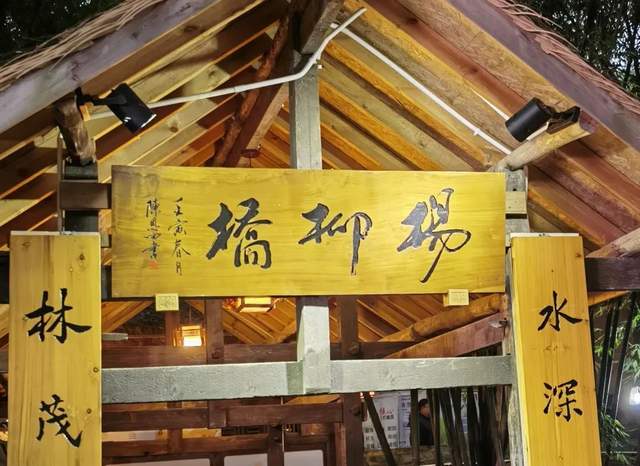 楊柳橋
壬寅春月
水深
林茂